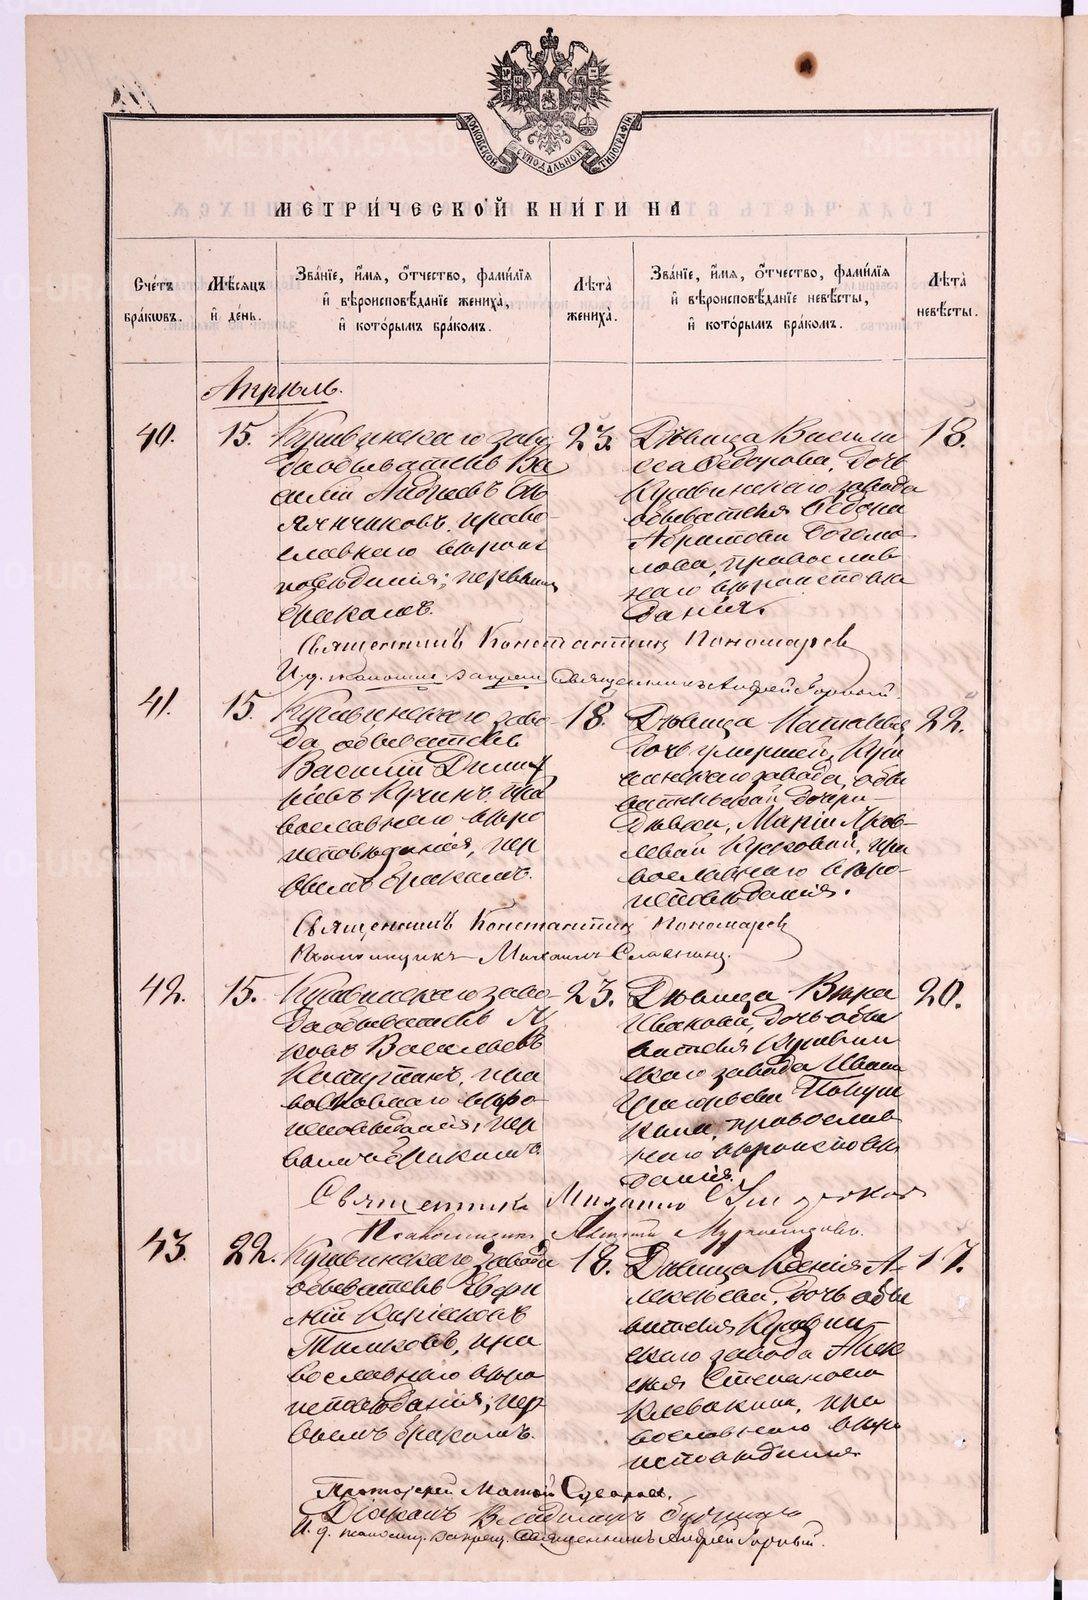 МОСКОВСКОЙ СѴНОДАЛЬНОЙ ТИПОГРАФІИ
МЕТРИ́ЧЕСКОЙ КНИ́ГИ НА
Сче́тъ бра́кѡвъ.
Мѣ́сяцъ и҆ де́нь.
Зва́нїе, и҆́мя, ѻ҆́тчество, фами́лїя и҆ вѣроисповѣ́данїе жениха̀, и҆ кото́рымъ бра́комъ.
Лѣта̀ жениха̀.
Зва́нїе, и҆́мя, ѻ҆́тчество, фами́лїя и҆ вѣроисповѣ́данїе невѣ́сты, и҆ кото́рымъ бра́комъ.
Лѣта̀ невѣ́сты.
Апрѣль.
40.
15.
Кушвинскаго заво
да обыватель Ва
силій Андреевъ
православнаго вѣроис
повѣданія; первымъ
бракомъ.
23.
Дѣвица Васили
са Ѳедорова, дочь
Кушвинскаго завода
обывателя Ѳедора
Абрамова Богомо
лова, православ
наго вѣроисповѣ
данія.
18.
Священникъ Константинъ Пономаревъ
И. д. псаломщ. запрещ. Священникъ Андрей Горный.
41.
15.
Кушвинскаго заво
да, обыватель
Василій Димит
ріевъ Кучинъ, пра
вославнаго вѣро
исповѣданія, пер
вымъ бракомъ.
18.
Дѣвица Наталія
дочь умершей, Куш
винскаго завода, обы
вательской дочери
дѣвки, Маріи Яков
левой пра
вославнаго вѣро
исповѣданія.
22.
Священникъ Константинъ Пономаревъ
Псаломщикъ Михаилъ Славнинъ.
42.
15.
Кушвинскаго заво
да обыватель Я
ковъ Васильевъ
пра
вославнаго вѣро
исповѣданія, пер
вымъ бракомъ.
23.
Дѣвица Вѣра
Иванова, дочь обы
вателя Кушвин
скаго завода Ивана
Григорьева
православ
наго вѣроисповѣ
данія.
20.
Священникъ Михаилъ
Псаломщикъ
43.
22.
Кушвинскаго завода
обыватель Евфи
мій
пра
вославнаго вѣро
исповѣданія; пер
вымъ бракомъ.
18.
Дѣвица Ксенія А
лексѣева, дочь обы
вателя Кушвин
скаго завода Алек
сѣя Степанова
Клевакина, пра
вославнаго вѣро
исповѣданія
17.
Протоіерей
Діаконъ Владиміръ
И. д. псаломщ. запрещ. Священникъ Андрей Горный.